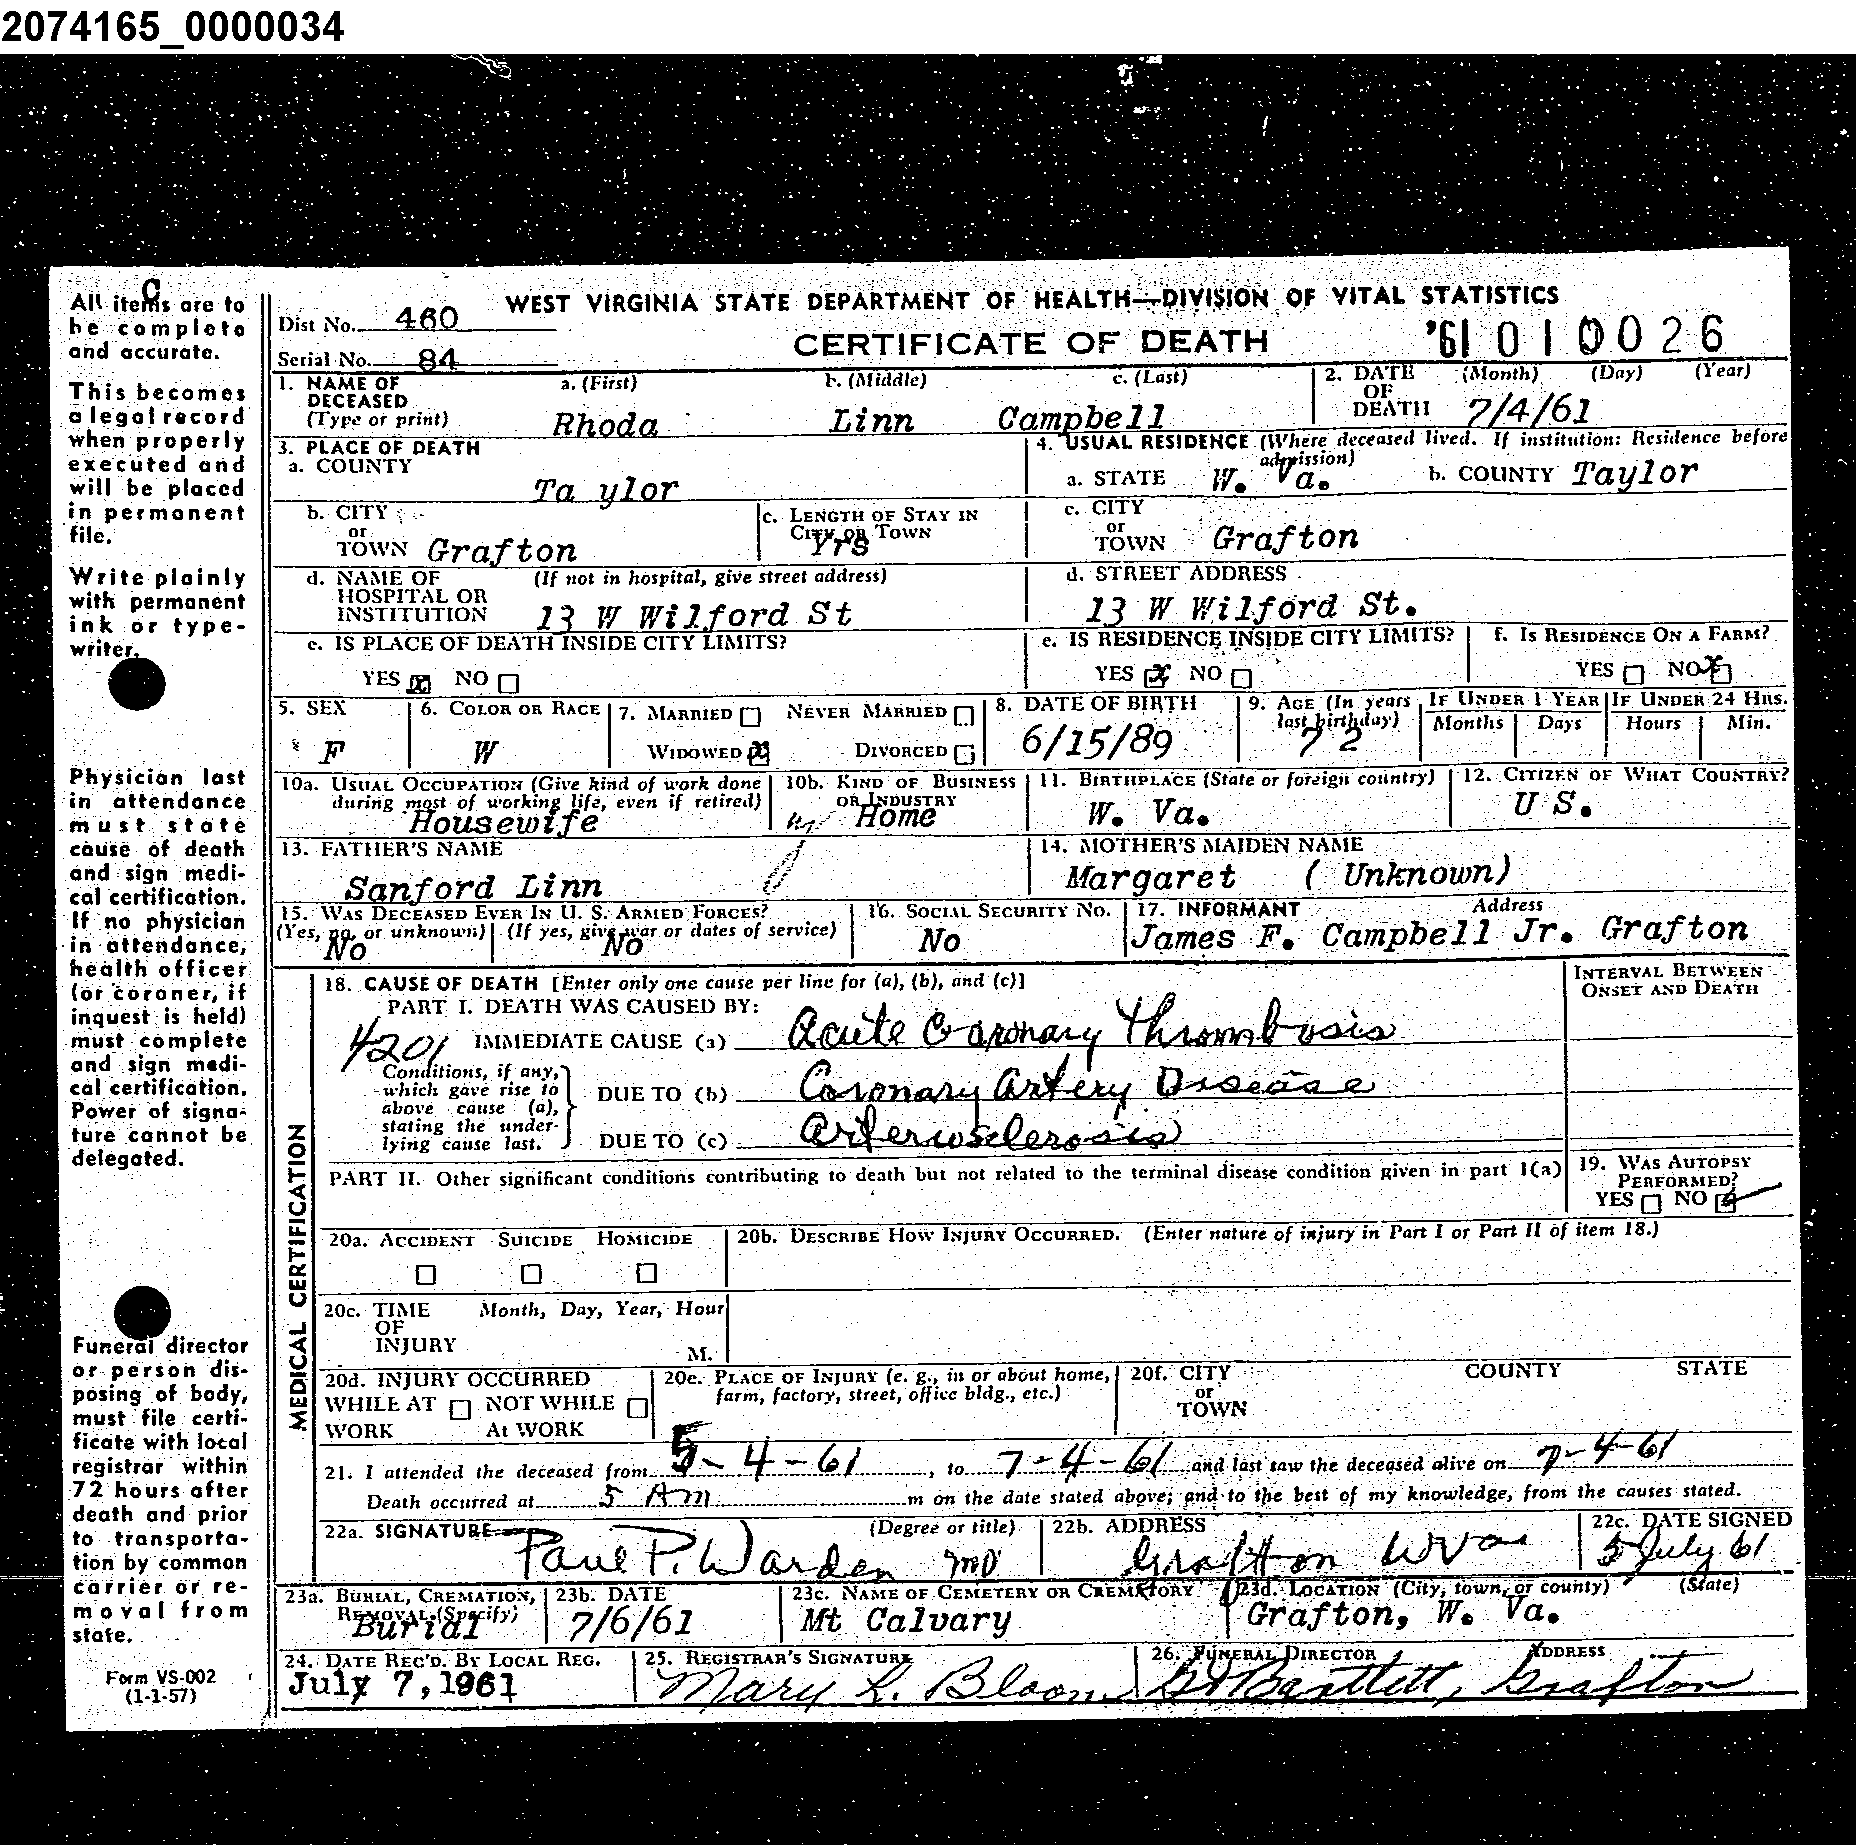 2074165_0000034
All items are to be complete and accurate.
This becomes a legal record when properly executed and will be placed in permanent file.
Write plainly with permanent ink or typewriter.
Physician last in attendance must state cause of death and sign medical certification. If no physician in attendance, health officer (or coroner, if inquest is held) must complete and sign medical certification. Power of signature cannot be delegated.
Funeral director or person disposing of body, must file certificate with local registrar within 72 hours after death and prior to transportation by common carrier or removal from state.
Form VS-002
(1-1-57)
WEST VIRGINIA STATE DEPARTMENT OF HEALTH—DIVISION OF VITAL STATISTICS
Dist No. 460
CERTIFICATE OF DEATH
'61 010026
Serial No. 84
1. NAME OF DECEASED (Type or print) a. (First) b. (Middle) c. (Last)
Rhoda Linn Campbell
2. DATE OF DEATH (Month) (Day) (Year)
7/4/61
3. PLACE OF DEATH
a. COUNTY
Ta ylor
4. USUAL RESIDENCE (Where deceased lived. If institution: Residence before admission)
a. STATE W. Va. b. COUNTY Taylor
b. CITY or TOWN Grafton
c. LENGTH OF STAY IN CITY OR TOWN
Yrs
c. CITY or TOWN Grafton
d. NAME OF HOSPITAL OR INSTITUTION (If not in hospital, give street address)
13 W Wilford St
d. STREET ADDRESS
13 W Wilford St.
e. IS PLACE OF DEATH INSIDE CITY LIMITS?
YES X NO
e. IS RESIDENCE INSIDE CITY LIMITS?
YES X NO
f. IS RESIDENCE ON A FARM?
YES NO X
5. SEX
F
6. COLOR OR RACE
W
7. MARRIED NEVER MARRIED
WIDOWED X DIVORCED
8. DATE OF BIRTH
6/15/89
9. AGE (In years last birthday)
7 2
IF UNDER 1 YEAR
Months Days
IF UNDER 24 HRS.
Hours Min.
10a. USUAL OCCUPATION (Give kind of work done during most of working life, even if retired)
Housewife
10b. KIND OF BUSINESS OR INDUSTRY
Home
11. BIRTHPLACE (State or foreign country)
W. Va.
12. CITIZEN OF WHAT COUNTRY?
U S.
13. FATHER'S NAME
Sanford Linn
14. MOTHER'S MAIDEN NAME
Margaret ( Unknown)
15. WAS DECEASED EVER IN U. S. ARMED FORCES?
(Yes, no, or unknown) (If yes, give war or dates of service)
No No
16. SOCIAL SECURITY NO.
No
17. INFORMANT Address
James F. Campbell Jr. Grafton
MEDICAL CERTIFICATION
18. CAUSE OF DEATH [Enter only one cause per line for (a), (b), and (c)]
INTERVAL BETWEEN ONSET AND DEATH
PART I. DEATH WAS CAUSED BY:
4201
IMMEDIATE CAUSE (a) Acute Coronary Thrombosis
Conditions, if any, which gave rise to above cause (a), stating the underlying cause last.
DUE TO (b) Coronary Artery Disease
DUE TO (c) Arteriosclerosis
PART II. Other significant conditions contributing to death but not related to the terminal disease condition given in part I(a)
19. WAS AUTOPSY PERFORMED?
YES NO
20a. ACCIDENT SUICIDE HOMICIDE
20b. DESCRIBE HOW INJURY OCCURRED. (Enter nature of injury in Part I or Part II of item 18.)
20c. TIME OF INJURY Month, Day, Year, Hour
M.
20d. INJURY OCCURRED
WHILE AT WORK NOT WHILE At WORK
20e. PLACE OF INJURY (e. g., in or about home, farm, factory, street, office bldg., etc.)
20f. CITY or TOWN COUNTY STATE
21. I attended the deceased from 5-4-61, to 7-4-61 and last saw the deceased alive on 7-4-61
Death occurred at 5 AM m on the date stated above; and to the best of my knowledge, from the causes stated.
22a. SIGNATURE (Degree or title)
Paul P. Warden MD
22b. ADDRESS
Grafton W Va
22c. DATE SIGNED
5 July 61
23a. BURIAL, CREMATION, REMOVAL (Specify)
Burial
23b. DATE
7/6/61
23c. NAME OF CEMETERY OR CREMATORY
Mt Calvary
23d. LOCATION (City, town, or county) (State)
Grafton, W. Va.
24. DATE REC'D. BY LOCAL REG.
July 7, 1961
25. REGISTRAR'S SIGNATURE
Mary L. Bloom
26. FUNERAL DIRECTOR ADDRESS
Bartlett, Grafton